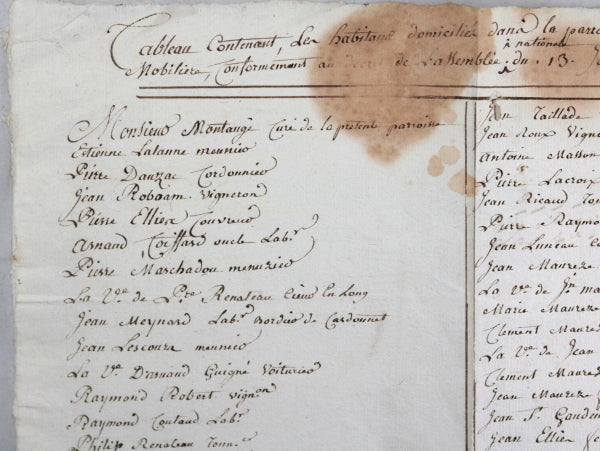 Tableau Contenant, Les habitans domiciliés dans la paro
Mobiliere, Conformement au decret de L'assemblée nationale du 13. J
Monsieur Montaugé Curé de la présent paroisse
Etienne Lalanne meunier
Pierre Dauzac Cordonnier
Jean Roboam Vigneron
Pierre Elliea Couvreur
Arnaud Coiffard oncle Labr
Pierre Marchadou menuzier
La Ve. de Pre Renateau Cieur En Long
Jean Meynard Labr Bordier de Cardonnet
Jean Lescouza meunier
La Ve D'arnaud Guigné Voiturier
Raymond Robert vignon
Raymond Coutaud Labr
Philip Renateau Tonnr
Jean Taillade
Jean Roux Vigne
Antoine Masson
Pierre Lacroix
Jean Ricaud Ton
Pierre Raymo
Jean Luneau
Jean Maureze
La Ve de Jn ma
Marie Maureze
Clement Maured
La Ve. de Jean
Clement Maured
Jean Maureze
Jean F. Gaudin
Jean Ellie